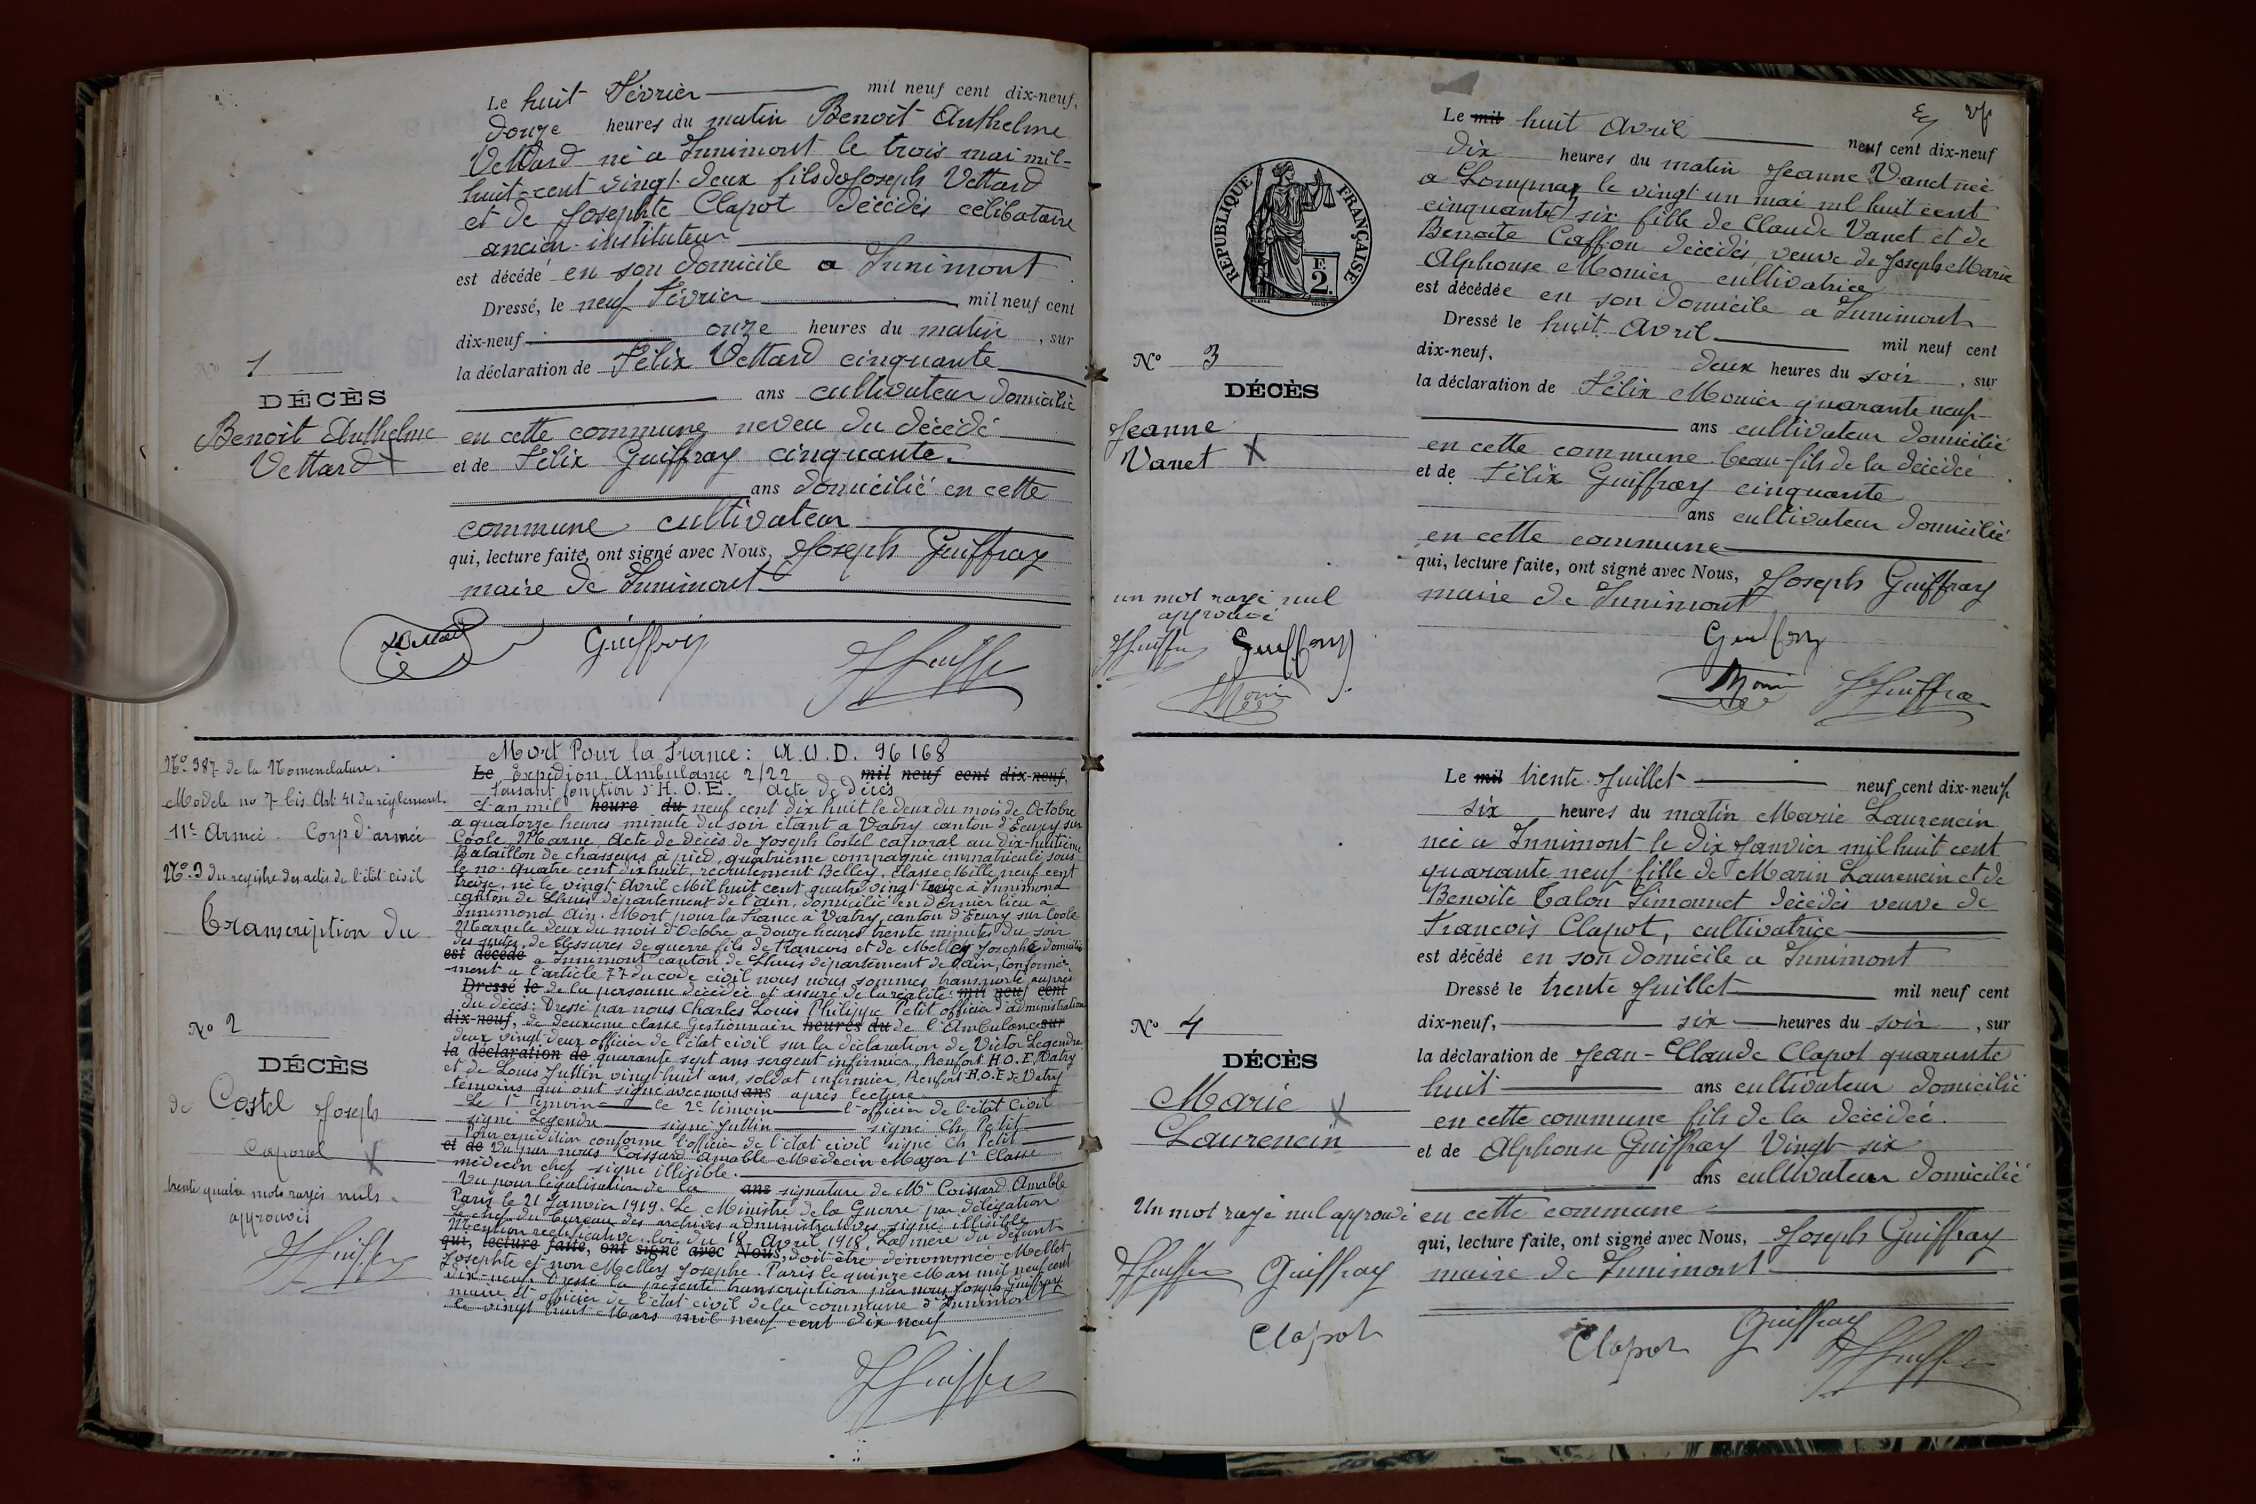 Le huit Février mil neuf cent dix-neuf,
douze heures du matin Benoît Anthelme
Vettard né a Innimont le trois mai mil-
huit-cent vingt-deux fils de Joseph Vettard
et de Josephte Clapot décédés célibataire
ancien instituteur
est décédé en son domicile a Innimont
Dressé, le neuf Février mil neuf cent
dix-neuf onze heures du matin, sur
la déclaration de Félix Vettard cinquante
ans cultivateur domicilié
en cette commune neveu du décédé
et de Félix Guiffray cinquante
ans domicilié en cette
commune cultivateur
qui, lecture faite, ont signé avec Nous, Joseph Guiffray
maire de Innimont
No 1
DÉCÈS
Benoît Anthelme
Vettard X
Guiffray
No 387 de la Nomenclature.
Modèle no 7 bis Art. 41 du règlement.
11e Armée. Corp d'armée
No 3 du registre des actes de l'état civil
Transcription du
No 2
DÉCÈS
de Costel Joseph
Caporal X
trente quatre mots rayés nuls
approuvés
Mort Pour la France: A.V.D. 96168
Le Expédion Ambulance 2/22 mil neuf cent dix-neuf,
faisant fonction d'H.O.E. Acte de décès
L'an mil heure du neuf cent dix huit le deux du mois de Octobre
a quatorze heures minute du soir étant a Vatry canton d'Ecury sur
Coole Marne, Acte de décès de Joseph Costel caporal au dix-huitième
Bataillon de chasseurs à pied, quatrième compagnie immatriculé sous
le no. quatre cent dix huit, recrutement Belley, classe Mille neuf cent
treize, né le vingt Avril Mil huit cent quatre vingt treize à Innimond
canton de Lhuis département de l'ain, domicilié en dernier lieu à
Innimond Ain. Mort pour la France à Vatry, canton d'Ecury sur Coole
Marne le deux du mois d'Octobre a douze heures trente minutes du soir
des suites de blessures de guerre fils de Francois et de Melley Josephe domicilié
est décédé a Innimont canton de Lhuis département de l'ain, Conformé-
ment a l'article 77 du code civil nous nous sommes transporté auprès
Dressé le de la personne décédée et assuré de la réalité mil neuf cent
du décès: Dressé par nous Charles Louis Philippe Petit officier d'administration
dix-neuf, de deuxième classe Gestionnaire heures du de l'Ambulance sur
deux vingt deux officier de l'état civil sur la déclaration de Victor Legendre
la déclaration de quarante sept ans sergent infirmier, Renfort H.O.E, Vatry
et de Louis Juttin vingt huit ans, soldat infirmier, Renfort H.O.E de Vatry
témoins qui ont signé avec nous ans après lecture
Le 1er témoin le 2e témoin l'officier de l'état civil
signé Legendre signé Juttin signé Ch Petit
Pour expédition conforme l'officier de l'état civil signé Ch Petit
et de Vu par nous Coissard Amable Médecin Major 1re Classe
médecin chef signé illisible.
Vu pour légalisation de la ans signature de Mr Coissard Amable
Paris le 21 Janvier 1919. Le Ministre de la Guerre par délégation
Le chef du bureau des archives administratives signé illisible
Mention rectificative. loi du 18 Avril 1918. La mère du défunt
qui, lecture faite, ont signé avec Nous, doit être dénommée Mellet
Josephte et non Melley Josephe. Paris le quinze Mars mil neuf cent
dix-neuf. Dressé la présente transcription par nous Joseph Guiffray
maire et officier de l'état civil de la commune d'Innimont
le vingt huit Mars mil neuf cent dix neuf
RÉPUBLIQUE FRANÇAISE
F.
2.
Le mil huit Avril neuf cent dix-neuf
dix heures du matin Jeanne Vanet née
a Lompnaz le vingt un mai mil huit cent
cinquante six fille de Claude Vanet et de
Benoite Caffion décédés, veuve de Joseph Marie
Alphonse Monier cultivatrice
est décédée en son domicile a Innimont
Dressé le huit Avril mil neuf cent
dix-neuf, deux heures du soir, sur
la déclaration de Félix Monier quarante neuf
ans cultivateur domicilié
en cette commune beau-fils de la décédée
et de Félix Guiffray cinquante
ans cultivateur domicilié
en cette commune
qui, lecture faite, ont signé avec Nous, Joseph Guiffray
maire de Innimont
No 3
DÉCÈS
Jeanne
Vanet X
un mot rayé nul
approuvé
Guiffray
Le mil trente Juillet neuf cent dix-neuf
six heures du matin Marie Laurencin
née a Innimont le dix Janvier mil huit cent
quarante neuf fille de Marin Laurencin et de
Benoite Talon Simonnet décédés veuve de
Francois Clapot, cultivatrice
est décédé en son domicile a Innimont
Dressé le trente Juillet mil neuf cent
dix-neuf, six heures du soir, sur
la déclaration de Jean-Claude Clapot quarante
huit ans cultivateur domicilié
en cette commune fils de la décédée.
et de Alphonse Guiffray Vingt-six
ans cultivateur domicilié
en cette commune
qui, lecture faite, ont signé avec Nous, Joseph Guiffray
maire de Innimont
No 4
DÉCÈS
Marie X
Laurencin
Un mot rayé nul approuvé
Guiffray
Clapot
Clapot Guiffray